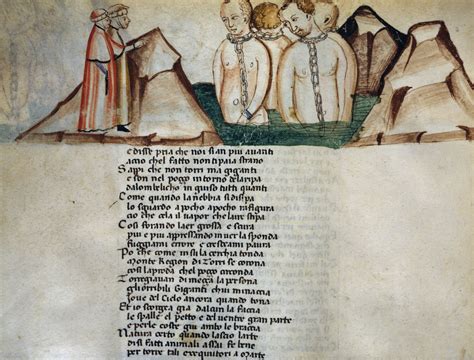 e disse pria che noi sian piu avanti
acio chel fatto non ti paia strano
Sappi che non torri ma giganti
e son nel poço intorno dela ripa
dalombelicho in giuso tutti quanti
Come quando la nebbia si disipa
lo sguardo a pocho a pocho rafigura
cio che cela il vapor che laire stipa
Cosi forando laer grossa e scura
piu e piu appressando inver la sponda
fuggiami errore e crescemi paura
Po che come in su la cerchia tonda
Monte Region di Torri se corona
cosi laproda chel poço circonda
Torregiavan di meça la persona
gliorribili Giganti chui minaccia
Jove del Cielo ancora quando tona
Et io scorgea gia dalcun la faccia
le spalle el petto e del ventre gran parte
e perle coste giu le braccia
Natura certo quando lascio larte
di si fatti animali assai fe bene
per torre tali exequitori a marte